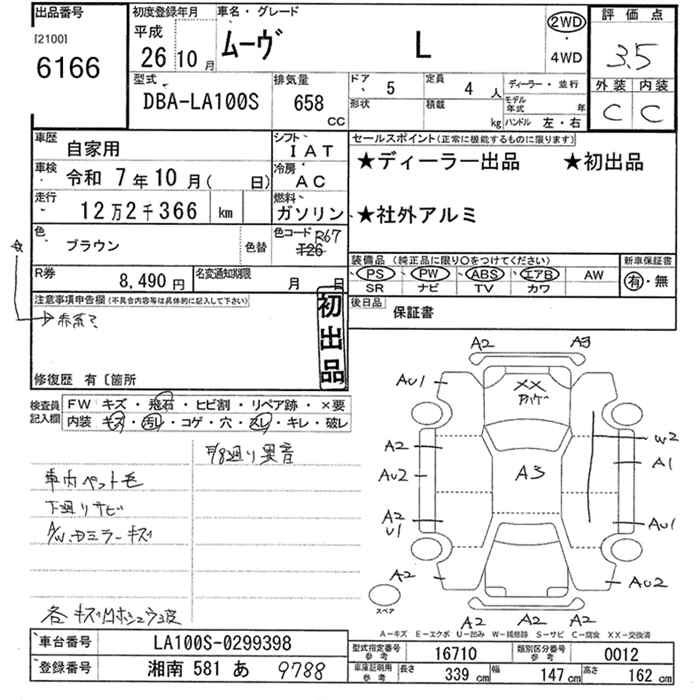 出品番号
[2100]
6166
初度登録年月
平成
26 10月
車名・グレード
ムーヴ L
2WD
・
4WD
評価点
3.5
外装 内装
C C
型式
DBA-LA100S
排気量
658
CC
ドア
5
定員
4 人
ディーラー・並行
形状
積載
kg
モデル年式
年
ハンドル 左・右
車歴
自家用
シフト
IAT
車検
令和 7年10月( 日)
冷房
AC
走行
12万2千366 km
燃料
ガソリン
色
ブラウン
色替
色コード
R67
T26
R券
8,490 円
名変通知期限
月 日
セールスポイント(正常に機能するものに限ります)
★ディーラー出品 ★初出品
★社外アルミ
装備品 (純正品に限り○をつけてください)
PS PW ABS エアB AW
SR ナビ TV カワ
新車保証書
有・無
後日品
保証書
注意事項申告欄(不具合内容等は具体的に記入して下さい)
初出品
修復歴 有〔箇所
検査員記入欄
FW キズ・飛石・ヒビ割・リペア跡・×要
内装 キズ・汚レ・コゲ・穴・スレ・キレ・破レ
車内ペット毛
下廻りサビ
各キズ凹
A2 A3
AU1
XX
A2
AU2
A2
U1
A3
W2
A1
AU1
A2
AU2
A2 A2 A2
スペア
A-キズ E-エクボ U-凹み W-補修跡 S-サビ C-腐食 XX-交換済
車台番号
LA100S-0299398
登録番号
湘南 581 あ 9788
型式指定番号
参考
16710
類別区分番号
参考
0012
車庫証明用
参考
長さ
339 cm
幅
147 cm
高さ
162 cm